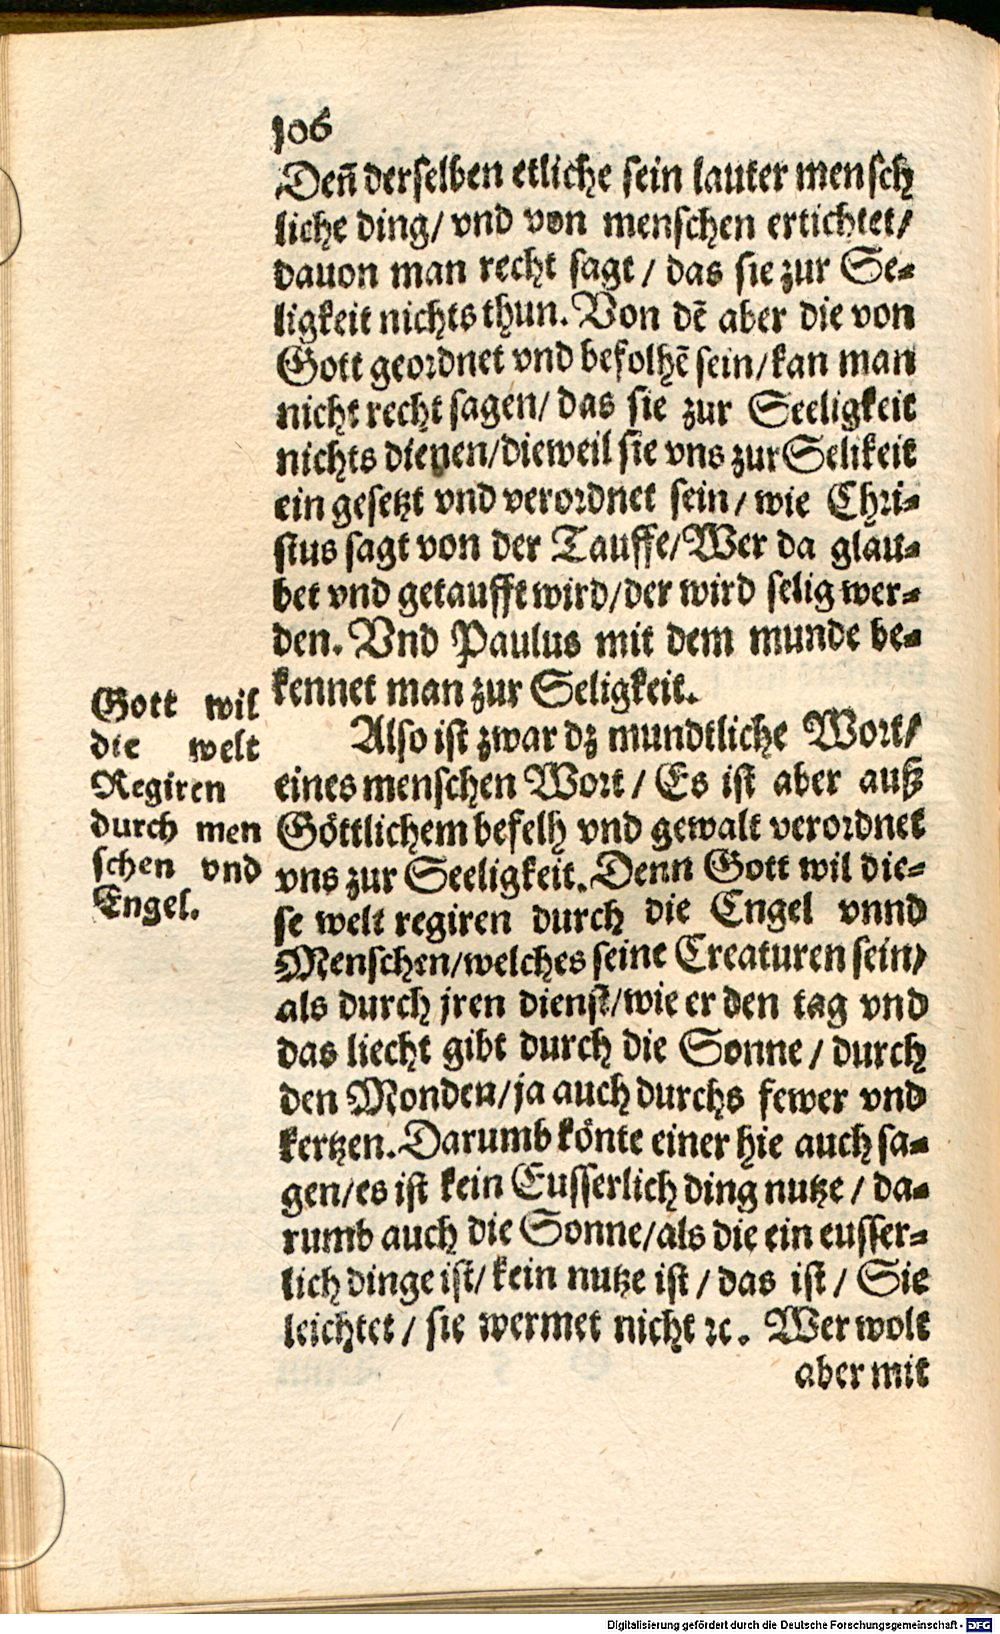 106
Deñ derselben etliche sein lauter mensch
liche ding/ vnd von menschen ertichtet/
dauon man recht sagt / das sie zur Se-
ligkeit nichts thun. Von dē aber die von
Gott geordnet vnd befolhē sein/kan man
nicht recht sagen/ das sie zur Seeligkeit
nichts dienen/dieweil sie vns zur Selikeit
ein gesetzt vnd verordnet sein/ wie Chri-
stus sagt von der Tauffe/Wer da glau-
bet vnd getaufft wird/der wird selig wer-
den. Vnd Paulus mit dem munde be-
kennet man zur Seligkeit.
Gott wil
die welt
Regiren
durch men
schen vnd
Engel.
Also ist zwar dz mundtliche Wort/
eines menschen Wort / Es ist aber auß
Göttlichem befelh vnd gewalt verordnet
vns zur Seeligkeit. Denn Gott wil die-
se welt regiren durch die Engel vnnd
Menschen/welches seine Creaturen sein/
als durch jren dienst/wie er den tag vnd
das liecht gibt durch die Sonne / durch
den Monden/ja auch durchs fewer vnd
kertzen. Darumb könte einer hie auch sa-
gen/es ist kein Eusserlich ding nutze / da-
rumb auch die Sonne/als die ein eusser-
lich dinge ist/ kein nutze ist / das ist / Sie
leichtet / sie wermet nicht ꝛc. Wer wolt
aber mit
Digitalisierung gefördert durch die Deutsche Forschungsgemeinschaft - DFG